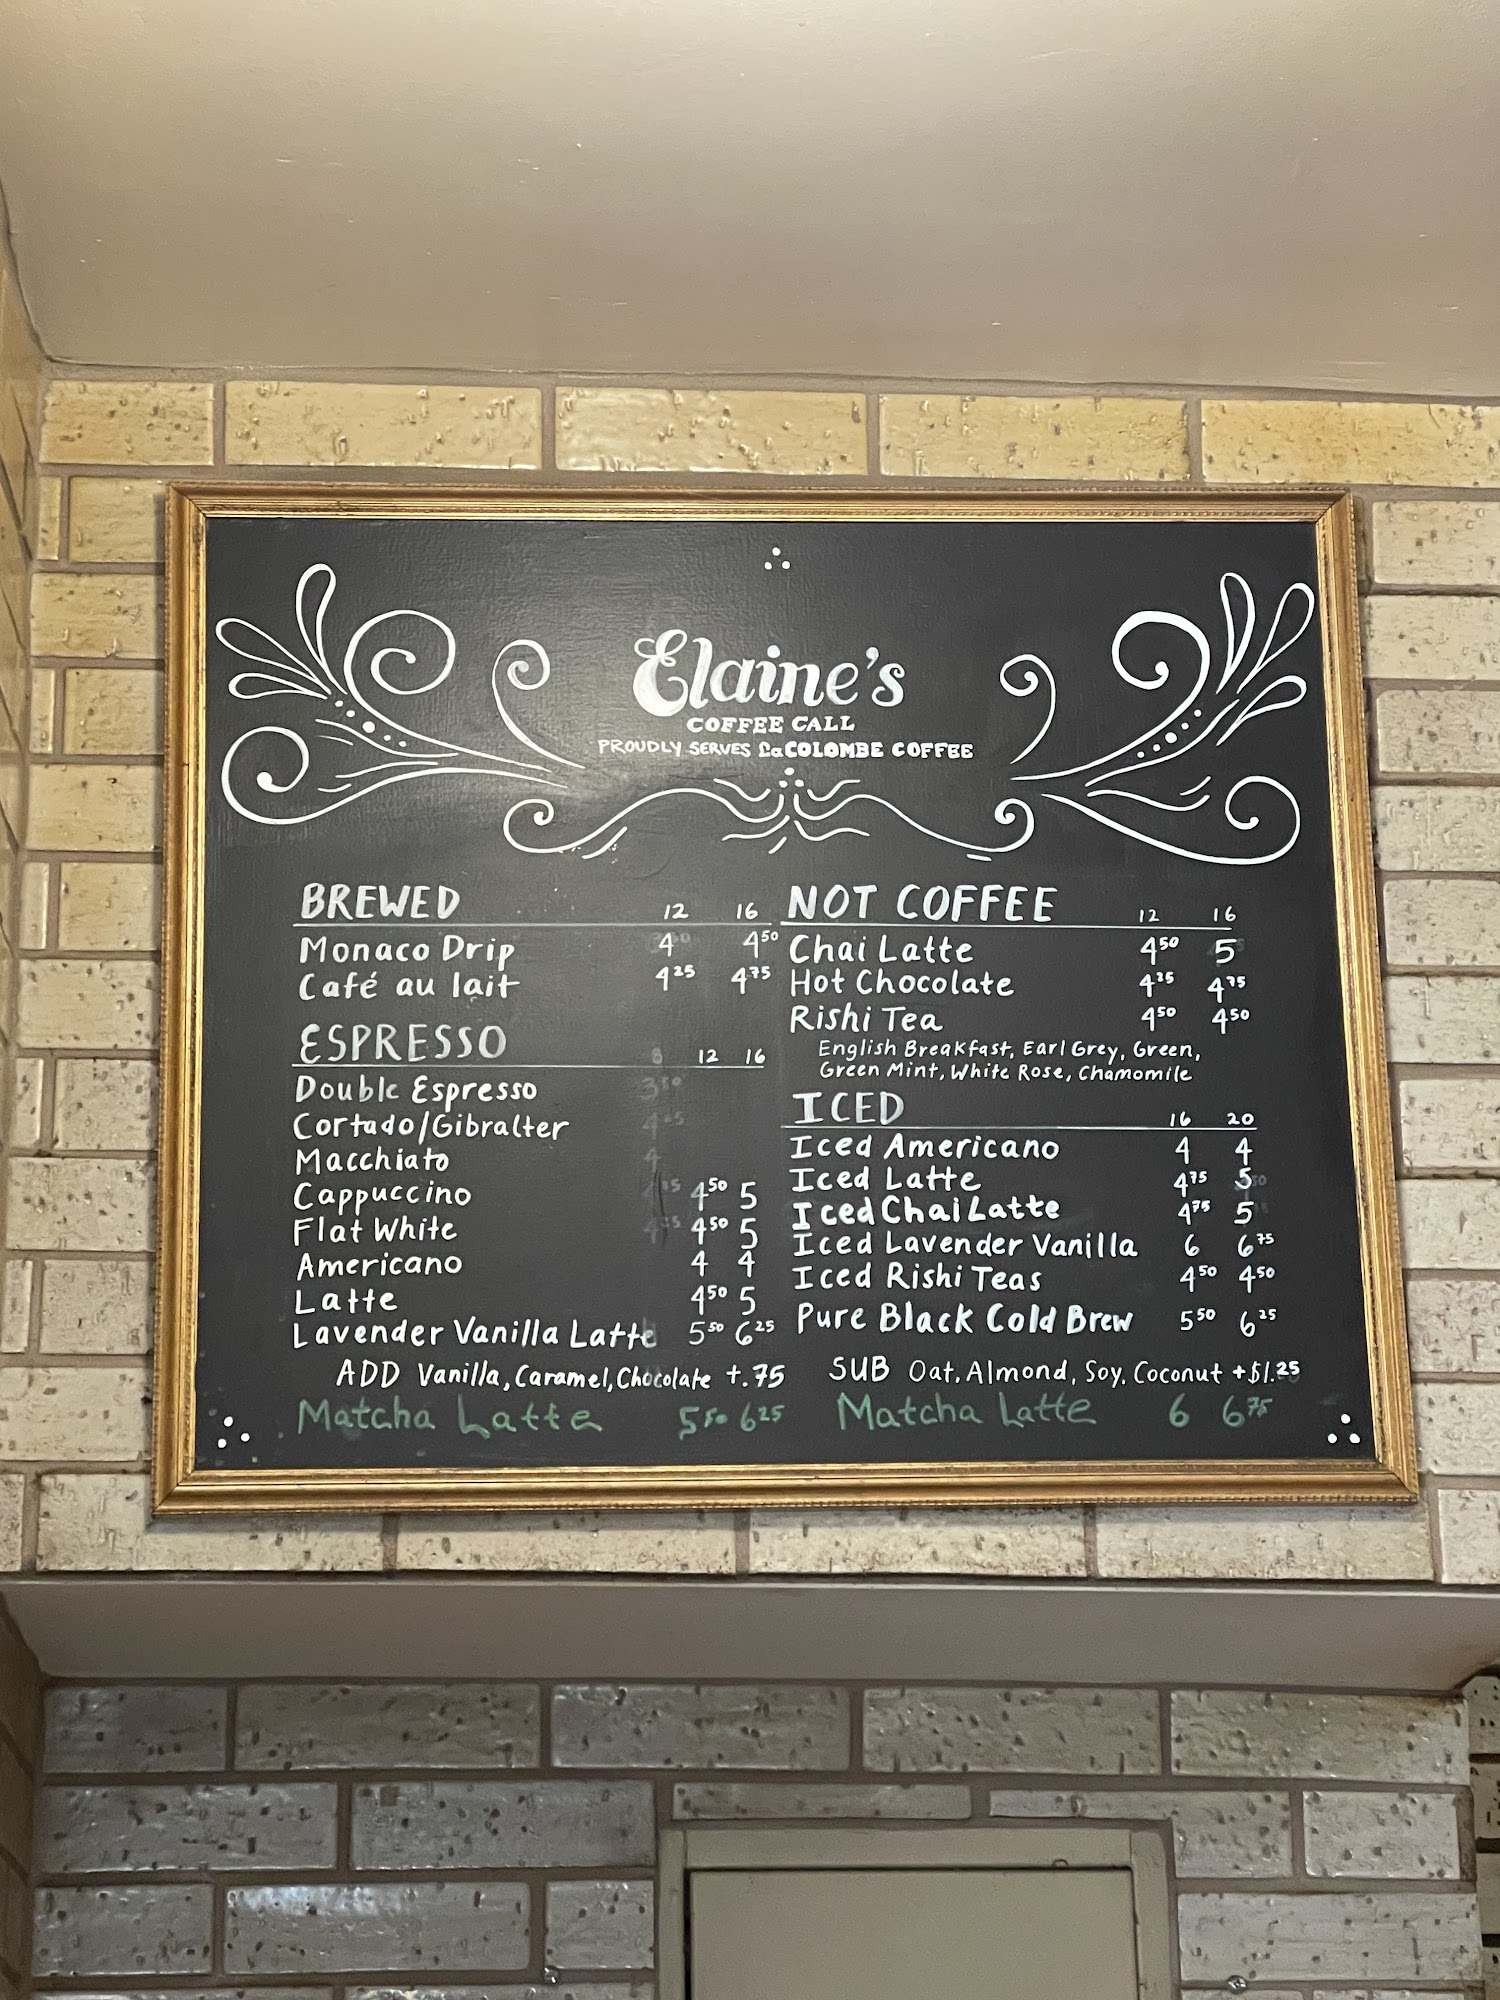 Elaine's
COFFEE CALL
PROUDLY SERVES La COLOMBE COFFEE
BREWED 12 16
Monaco Drip 4 4⁵⁰
Café au lait 4²⁵ 4⁷⁵
ESPRESSO 8 12 16
Double Espresso 3⁵⁰
Cortado/Gibralter
Macchiato 4
Cappuccino 4⁵⁰ 5
Flat White 4⁵⁰ 5
Americano 4 4
Latte 4⁵⁰ 5
Lavender Vanilla Latte 5⁵⁰ 6²⁵
ADD Vanilla, Caramel, Chocolate +.75
Matcha Latte 5⁵⁰ 6²⁵
NOT COFFEE 12 16
Chai Latte 4⁵⁰ 5
Hot Chocolate 4²⁵ 4⁷⁵
Rishi Tea 4⁵⁰ 4⁵⁰
English Breakfast, Earl Grey, Green,
Green Mint, White Rose, Chamomile
ICED 16 20
Iced Americano 4 4
Iced Latte 4⁷⁵ 5
Iced Chai Latte 4⁷⁵ 5
Iced Lavender Vanilla 6 6⁷⁵
Iced Rishi Teas 4⁵⁰ 4⁵⁰
Pure Black Cold Brew 5⁵⁰ 6²⁵
SUB Oat, Almond, Soy, Coconut +$1.25
Matcha Latte 6 6⁷⁵